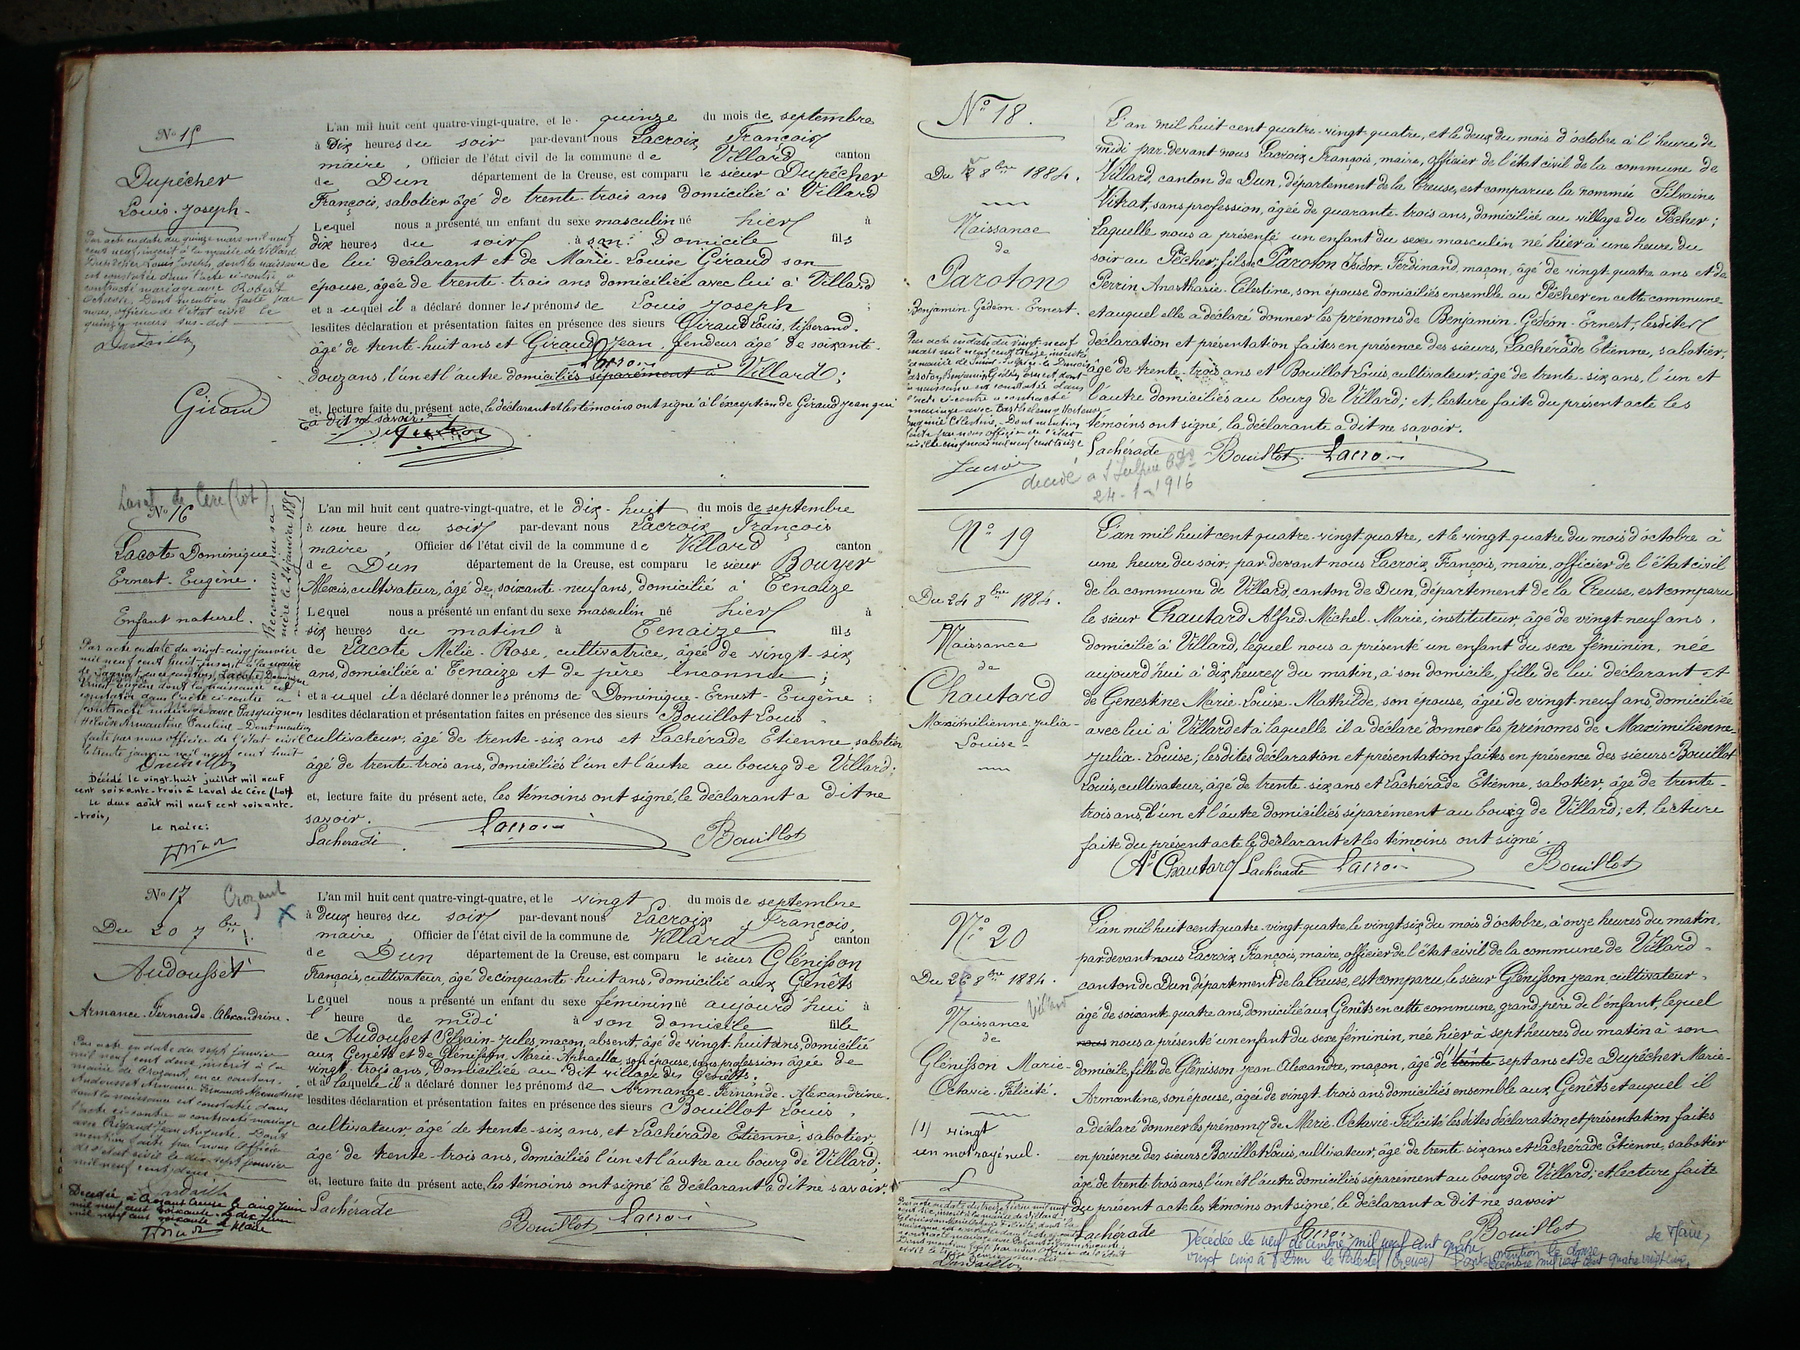 No 15
Dupêcher
Louis-Joseph-
Par acte en date du quinze mars mil neuf
cent neuf, inscrit à la mairie de Villard
Dupêcher Louis Joseph, dont la naissance
est constatée dans l'acte ci-contre, a
contracté mariage avec Robert
Octavie. Dont mention faite par
nous, officier de l'état civil le
quinze mars sus-dit
L'an mil huit cent quatre-vingt-quatre, et le quinze du mois de septembre
à Dix heures du soir par-devant nous Lacroix François
maire, Officier de l'état civil de la commune de Villard canton
de Dun département de la Creuse, est comparu le sieur Dupêcher
François, sabotier âgé de trente-trois ans domicilié à Villard
Lequel nous a présenté un enfant du sexe masculin né hier à
dix heures du soir à son Domicile fils
de lui déclarant et de Marie-Louise Giraud son
épouse, âgée de trente-trois ans domiciliée avec lui à Villard
et auquel il a déclaré donner les prénoms de Louis Joseph ;
lesdites déclaration et présentation faites en présence des sieurs Giraud Louis, tisserand.
âgé de trente-huit ans et Giraud Jean, fendeur âgé de soixante-
douze ans, l'un et l'autre domiciliés séparément à Villard ;
et, lecture faite du présent acte, le déclarant et les témoins ont signé à l'exception de Giraud Jean qui
a dit ne savoir.
Giraud Lacroix
Laval de Cère (Lot)
No 16
Lacote Dominique
Ernest-Eugène.
Enfant naturel.
Reconnu par sa
mère le 24 janvier 1885
Par acte en date du vingt-cinq janvier
mil neuf cent huit inscrit à la mairie
Lacote Dominique
Ernest Eugène dont la naissance est
constatée dans l'acte ci-contre a
contracté mariage avec Pasquignon
Héloïse Armantine Pauline. Dont mention
faite par nous officier de l'état-civil
le trente janvier mil neuf cent huit
Décédé le vingt-huit juillet mil neuf
cent soixante-trois à Laval de Cère (Lot)
Le deux août mil neuf cent soixante-
-trois,
Le Maire:
L'an mil huit cent quatre-vingt-quatre, et le dix-huit du mois de septembre
à une heure du soir par-devant nous Lacroix François
maire, Officier de l'état civil de la commune de Villard canton
de Dun département de la Creuse, est comparu le sieur Bouyer
Alexis, cultivateur, âgé de soixante-neuf ans, domicilié à Tenaize
Lequel nous a présenté un enfant du sexe masculin né hier à
six heures du matin à Tenaize fils
de Lacote Mélie-Rose, cultivatrice, âgée de vingt-six
ans, domiciliée à Tenaize et de père inconnu ;
et auquel il a déclaré donner les prénoms de Dominique-Ernest-Eugène ;
lesdites déclaration et présentation faites en présence des sieurs Bouillot Louis
cultivateur, âgé de trente-six ans et Lachérade Etienne, sabotier
âgé de trente-trois ans, domiciliés l'un et l'autre au bourg de Villard ;
et, lecture faite du présent acte, les témoins ont signé, le déclarant a dit ne
savoir.
Lachérade Lacroix Bouillot
No 17 Crozant
Du 20 7bre
Audousset
Armance-Fernande-Alexandrine.
Par acte en date du sept janvier
mil neuf cent deux inscrit à la
mairie de Crozant, en ce canton,
Audousset Armance Fernande Alexandrine
dont la naissance est constatée dans
l'acte ci-contre a contracté mariage
avec Rigaud Jean Auguste. Dont
mention faite par nous Officier
de l'état civil le dix sept janvier
mil neuf cent deux
L'an mil huit cent quatre-vingt-quatre, et le vingt du mois de septembre
à deux heures du soir par-devant nous Lacroix François,
maire, Officier de l'état civil de la commune de Villard canton
de Dun département de la Creuse, est comparu le sieur Glénisson
François, cultivateur, âgé de cinquante-huit ans, domicilié aux Genêts
Lequel nous a présenté un enfant du sexe féminin né aujourd'hui à
l'heure de midi à son domicile fille
de Audousset Sylvain-Jules, maçon, absent, âgé de vingt-huit ans, domicilié
aux Genêts et de Glénisson, Marie-Aphaella, son épouse, sans profession âgée de
vingt-trois ans, domiciliée au dit village des Genêts ;
et à laquelle il a déclaré donner les prénoms de Armance-Fernande-Alexandrine.
lesdites déclaration et présentation faites en présence des sieurs Bouillot Louis,
cultivateur, âgé de trente-six ans, et Lachérade Etienne, sabotier,
âgé de trente-trois ans, domiciliés l'un et l'autre au bourg de Villard ;
et, lecture faite du présent acte, les témoins ont signé le déclarant a dit ne savoir.
Lachérade Bouillot Lacroix
No 18.
Du 2 8bre 1884.
Naissance
de
Paroton
Benjamin-Gédéon-Ernest
Par acte en date du vingt-neuf
Lacroix
décédé à
24-1-1916
L'an mil huit cent quatre-vingt-quatre, et le deux du mois d'octobre à l'heure de
midi par-devant nous Lacroix François, maire, officier de l'état civil de la commune de
Villard, canton de Dun, département de la Creuse, est comparue la nommée Silvaine
Vitrat, sans profession, âgée de quarante-trois ans, domiciliée au village du Pécher ;
Laquelle nous a présenté un enfant du sexe masculin né hier à une heure du
soir au Pécher, fils de Paroton Isidor-Ferdinand, maçon, âgé de vingt-quatre ans et de
Perrin Anasthasie-Célestine, son épouse domiciliés ensemble au Pécher en cette commune
et auquel elle a déclaré donner les prénoms de Benjamin-Gédéon-Ernest ; lesdites
déclaration et présentation faites en présence des sieurs, Lachérade Etienne, sabotier,
âgé de trente-trois ans et Bouillot Louis, cultivateur, âgé de trente-six ans, l'un et
l'autre domiciliés au bourg de Villard ; et, lecture faite du présent acte les
témoins ont signé, la déclarante a dit ne savoir.
Lachérade Bouillot Lacroix
No 19
Du 24 8bre 1884.
Naissance
de
Chautard
Maximilienne-Julia-
Louise-
L'an mil huit cent quatre-vingt-quatre, et le vingt-quatre du mois d'octobre à
une heure du soir, par-devant nous Lacroix, François, maire, officier de l'état civil
de la commune de Villard, canton de Dun, département de la Creuse, est comparu
le sieur Chautard Alfred-Michel-Marie, instituteur, âgé de vingt-neuf ans,
domicilié à Villard, lequel nous a présenté un enfant du sexe féminin, née
aujourd'hui à dix heures du matin, à son domicile, fille de lui déclarant et
de Genestine Marie-Louise-Mathilde, son épouse, âgée de vingt-neuf ans, domiciliée
avec lui à Villard et à laquelle il a déclaré donner les prénoms de Maximilienne-
Julia-Louise ; lesdites déclaration et présentation faites en présence des sieurs Bouillot
Louis, cultivateur, âgé de trente-six ans et Lachérade Etienne, sabotier, âgé de trente-
trois ans, l'un et l'autre domiciliés séparément au bourg de Villard ; et, lecture
faite du présent acte le déclarant et les témoins ont signé
Ad Chautard Lachérade Lacroix Bouillot
No 20
Du 26 8bre 1884.
Naissance
de
Glénisson Marie-
Octavie-Félicité.
(1) vingt
un mot rayé nul.
L'an mil huit cent quatre-vingt-quatre, le vingt-six du mois d'octobre, à onze heures du matin,
par devant nous Lacroix, François, maire, officier de l'état civil de la commune de Villard
canton de Dun département de la Creuse, est comparu le sieur Glénisson Jean, cultivateur
âgé de soixante quatre ans, domicilié aux Genêts en cette commune, grand père de l'enfant, lequel
nous nous a présenté un enfant du sexe féminin, née hier à sept heures du matin à son
domicile, fille de Glénisson Jean-Alexandre, maçon, âgé de (1) trente sept ans et de Dupêcher Marie-
Armantine, son épouse, âgée de vingt-trois ans domiciliés ensemble aux Genêts et auquel il
a déclaré donner les prénoms de Marie-Octavie-Félicité les dites déclaration et présentation faites
en présence des sieurs Bouillot Louis, cultivateur, âgé de trente-six ans et Lachérade Etienne, sabotier
âgé de trente trois ans, l'un et l'autre domiciliés séparément au bourg de Villard, et, lecture faite
du présent acte les témoins ont signé, le déclarant a dit ne savoir
Lachérade Lacroix Bouillot
Décédée le neuf décembre mil neuf cent quatre
vingt cinq à Dun le Palestel (Creuse)
le Maire,